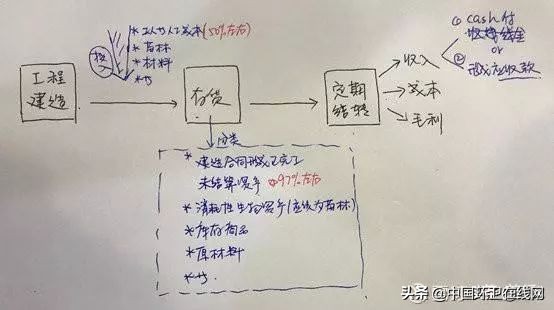 * 人工成本(50%左右)
* 苗木
* 材料
投
工程
建造
存货
定期
结转
收入
成本
毛利
① cash付
收钱
or
② 形成应收款
分类
* 建造合同形成已完工
未结算资产 中97%左右
* 消耗性生物资产(应该为苗林)
* 库存商品
* 原材料
头条@中国环卫在线网